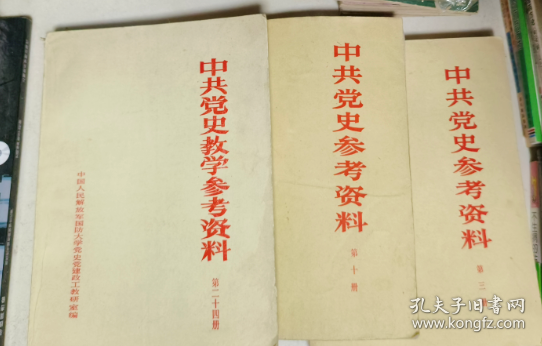 中共党史教学参考资料
第二十四册
中国人民解放军国防大学党史党建政工教研室编
中共党史参考资料
第十册
中共党史参考资料
第三册
孔夫子旧书网
book.kongfz.com